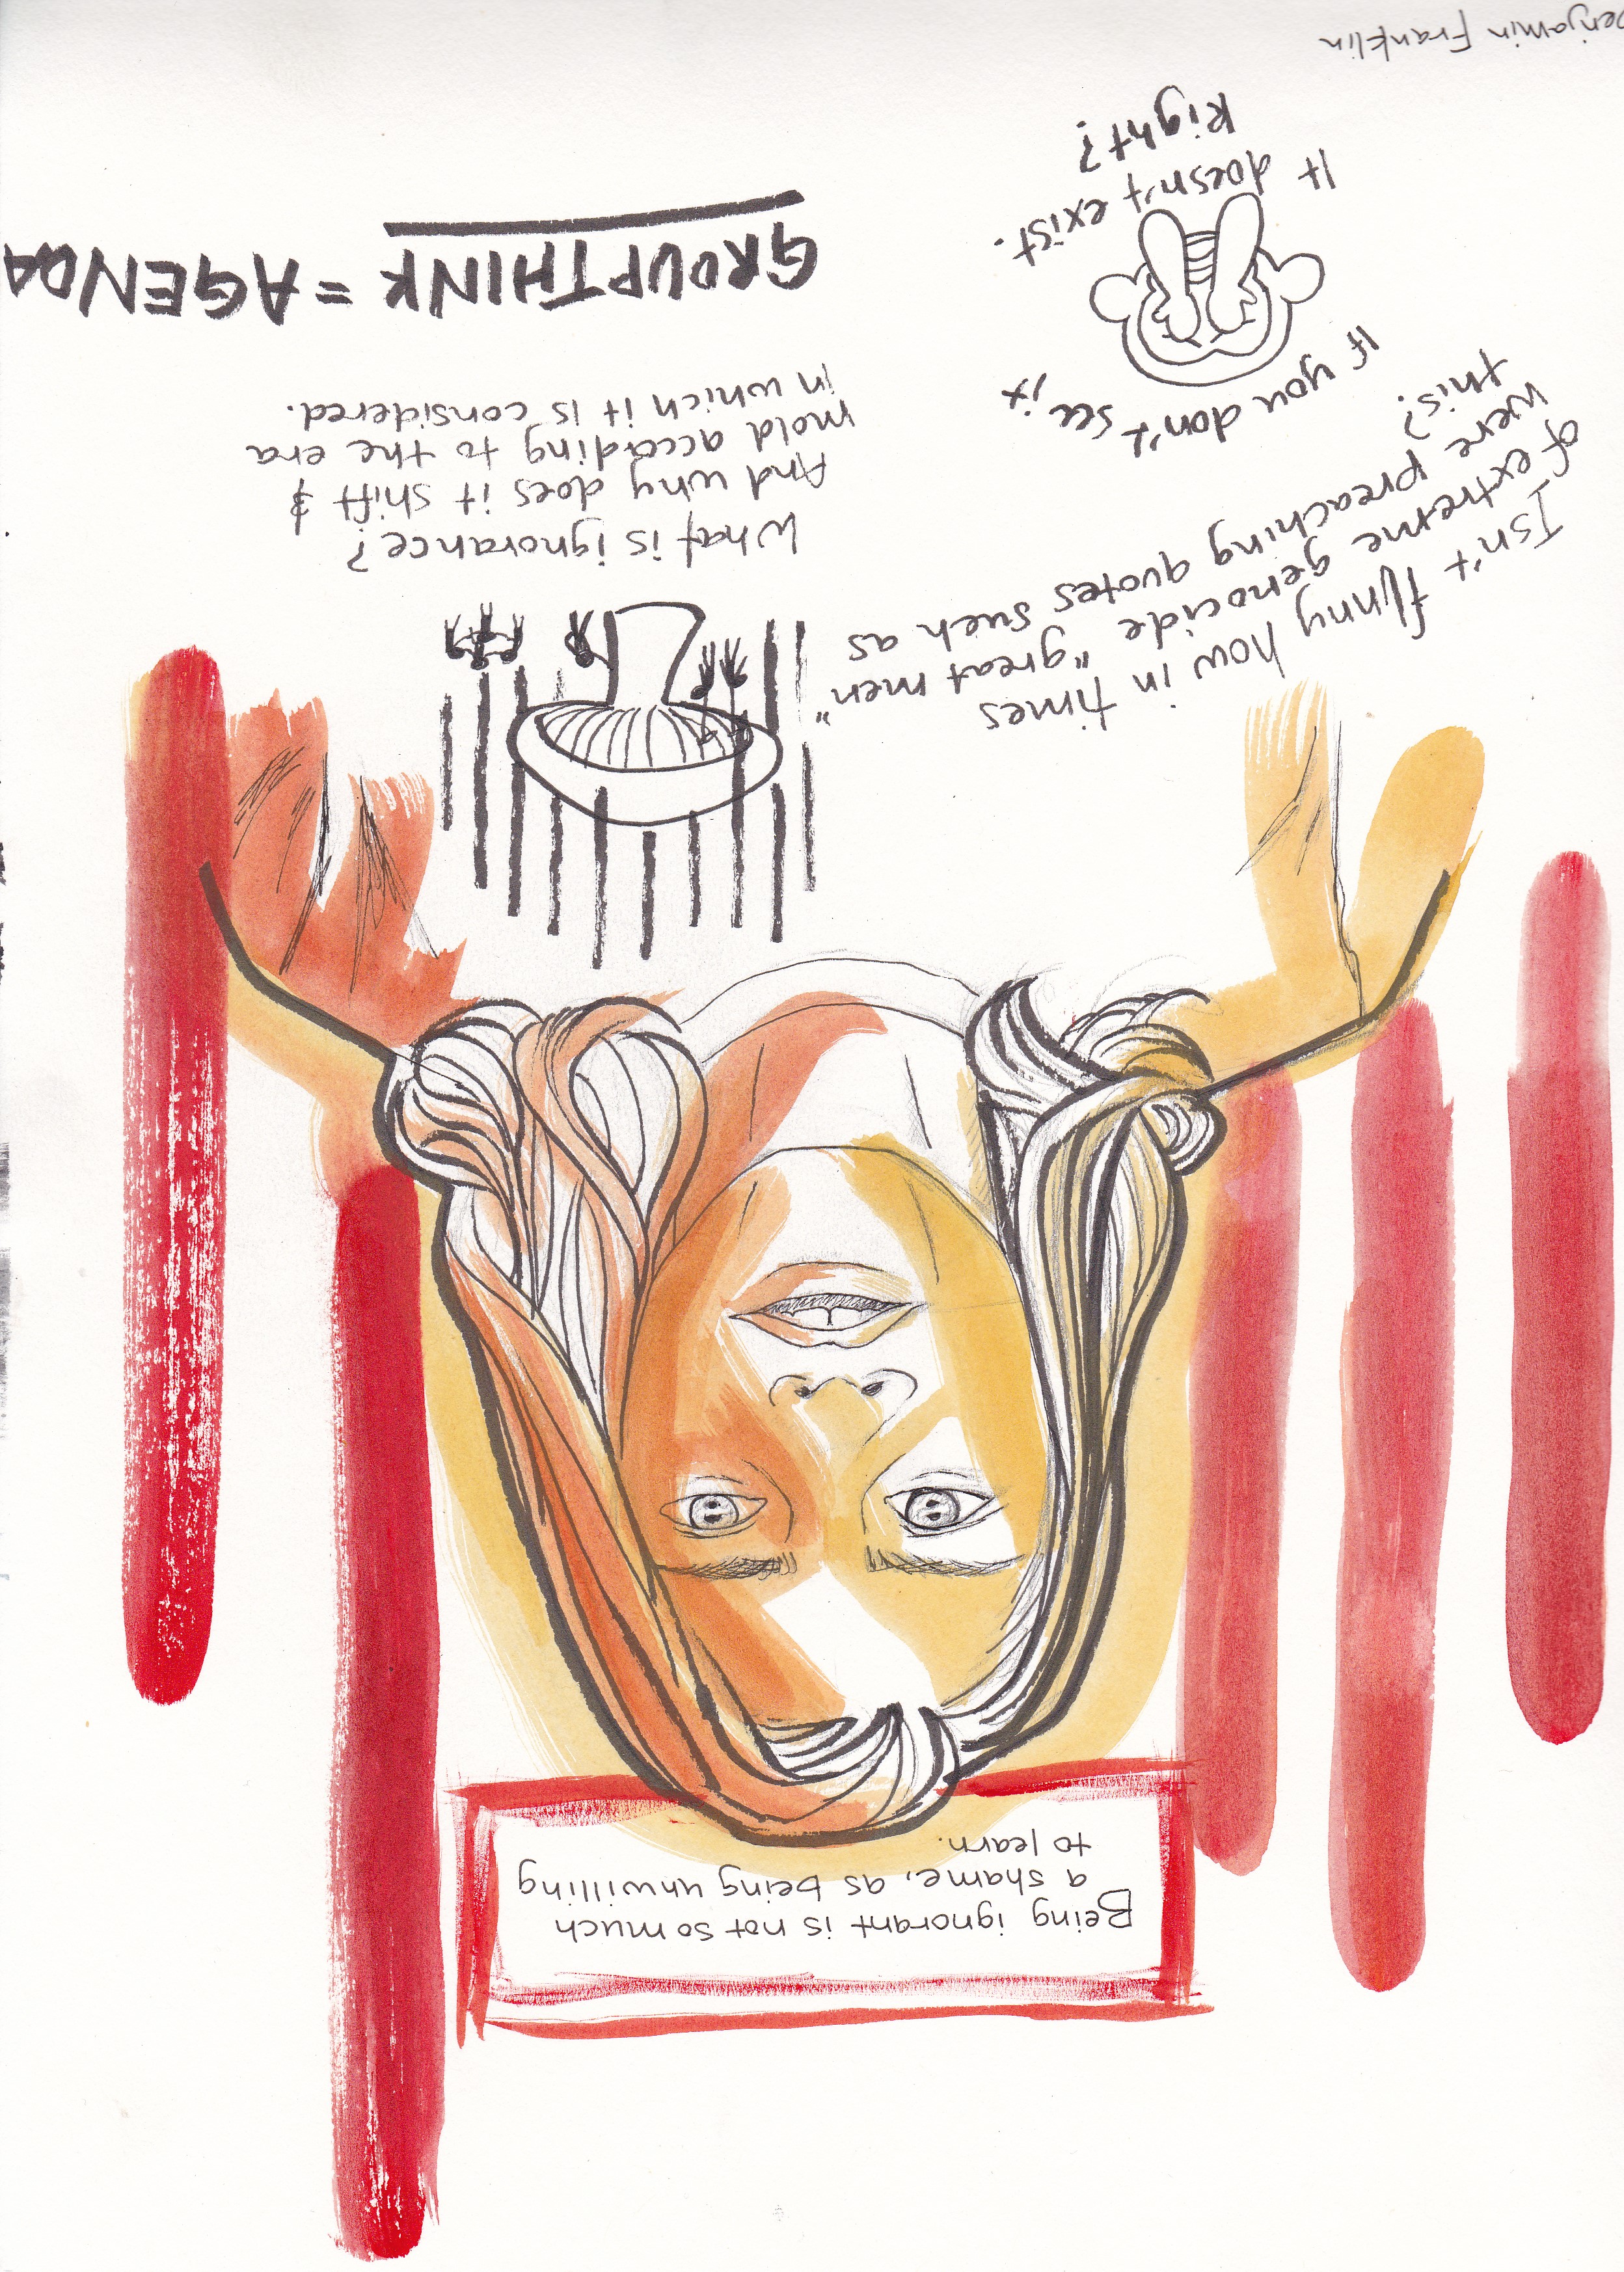 Being ignorant is not so much
a shame, as being unwilling
to learn.
Isn't funny how in times
of extreme genocide "great men"
were preaching quotes such as
this?
If you don't see it
It doesn't exist.
Right?
What is ignorance?
And why does it shift &
mold according to the era
in which it is considered.
GROUPTHINK = AGENDA
Benjamin Franklin